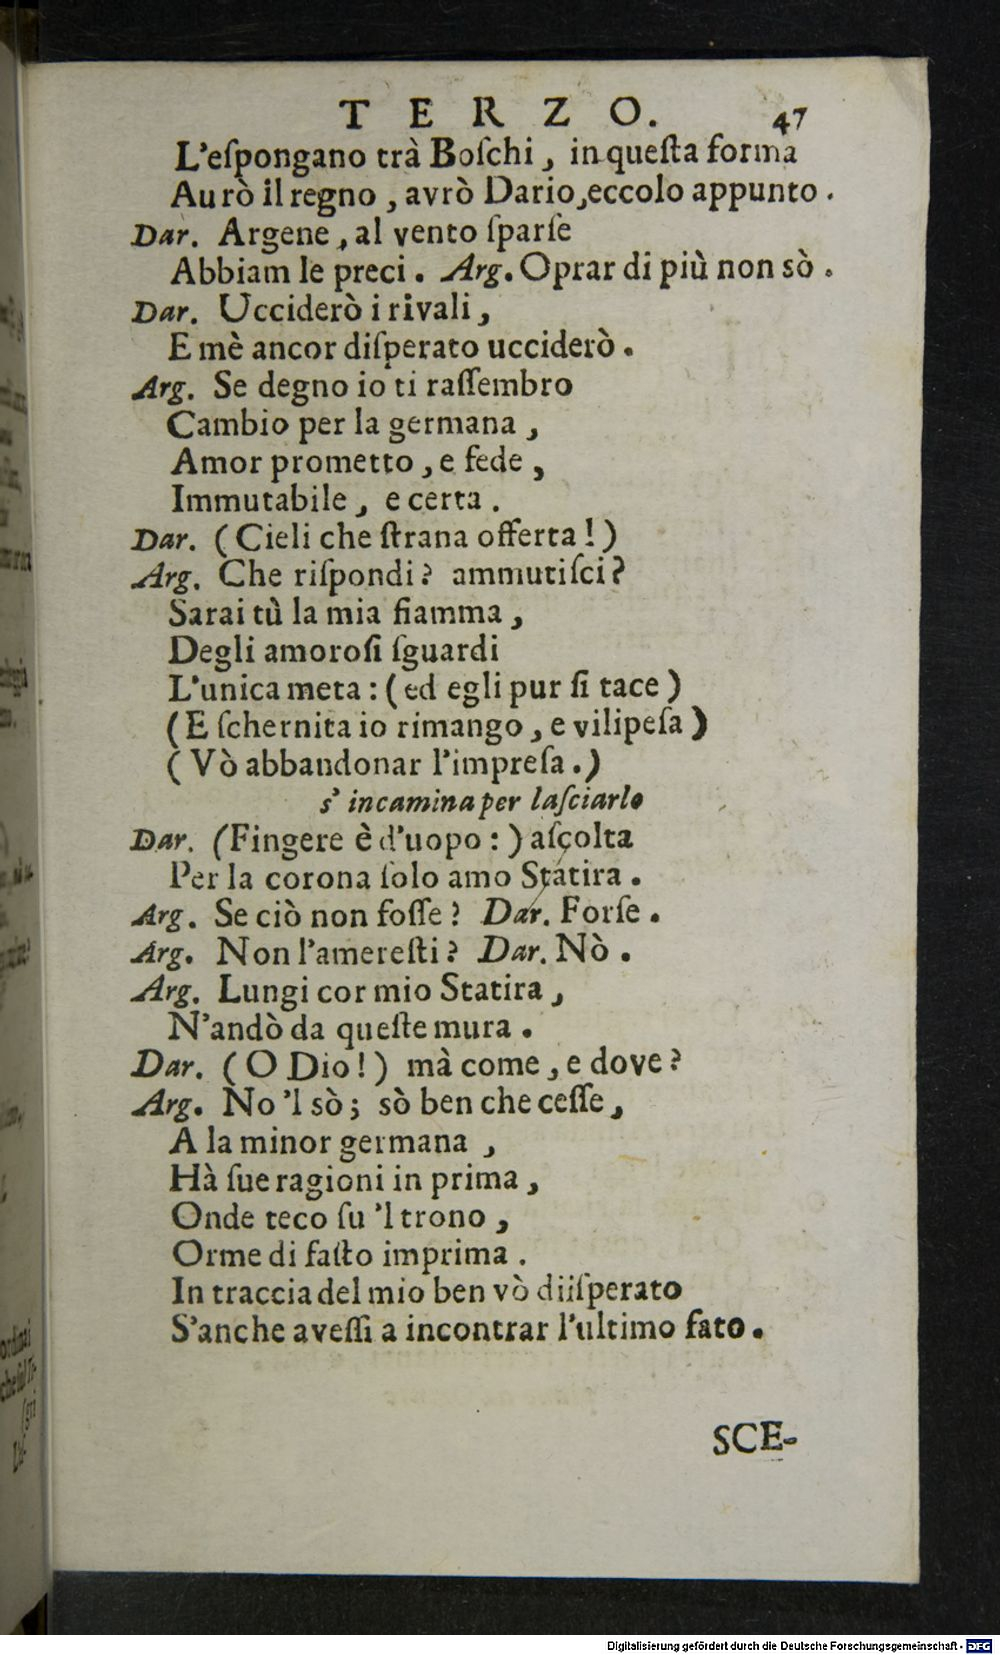 TERZO. 47
L'eſpongano trà Boſchi, in queſta forma
Aurò il regno, avrò Dario, eccolo appunto.
Dar. Argene, al vento ſparſe
Abbiam le preci. Arg. Oprar di più non sò.
Dar. Ucciderò i rivali,
E mè ancor diſperato ucciderò.
Arg. Se degno io ti raſſembro
Cambio per la germana,
Amor prometto, e fede,
Immutabile, e certa.
Dar. (Cieli che ſtrana offerta!)
Arg. Che riſpondi? ammutiſci?
Sarai tù la mia fiamma,
Degli amoroſi ſguardi
L'unica meta: (ed egli pur ſi tace)
(E ſchernita io rimango, e vilipeſa)
(Vò abbandonar l'impreſa.)
s' incamina per laſciarlo
Dar. (Fingere è d'uopo:) aſcolta
Per la corona ſolo amo Statira.
Arg. Se ciò non foſſe? Dar. Forſe.
Arg. Non l'amereſti? Dar. Nò.
Arg. Lungi cor mio Statira,
N'andò da queſte mura.
Dar. (O Dio!) mà come, e dove?
Arg. No 'l sò; sò ben che ceſſe,
A la minor germana,
Hà ſue ragioni in prima,
Onde teco ſu 'l trono,
Orme di faſto imprima.
In traccia del mio ben vò diiſperato
S'anche aveſſi a incontrar l'ultimo fato.
SCE-
Digitalisierung gefördert durch die Deutsche Forschungsgemeinschaft - DFG